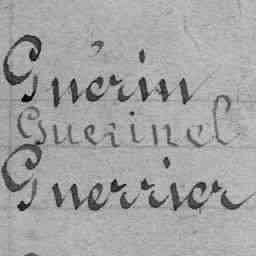 Guérin
Guerinel
Guerrier